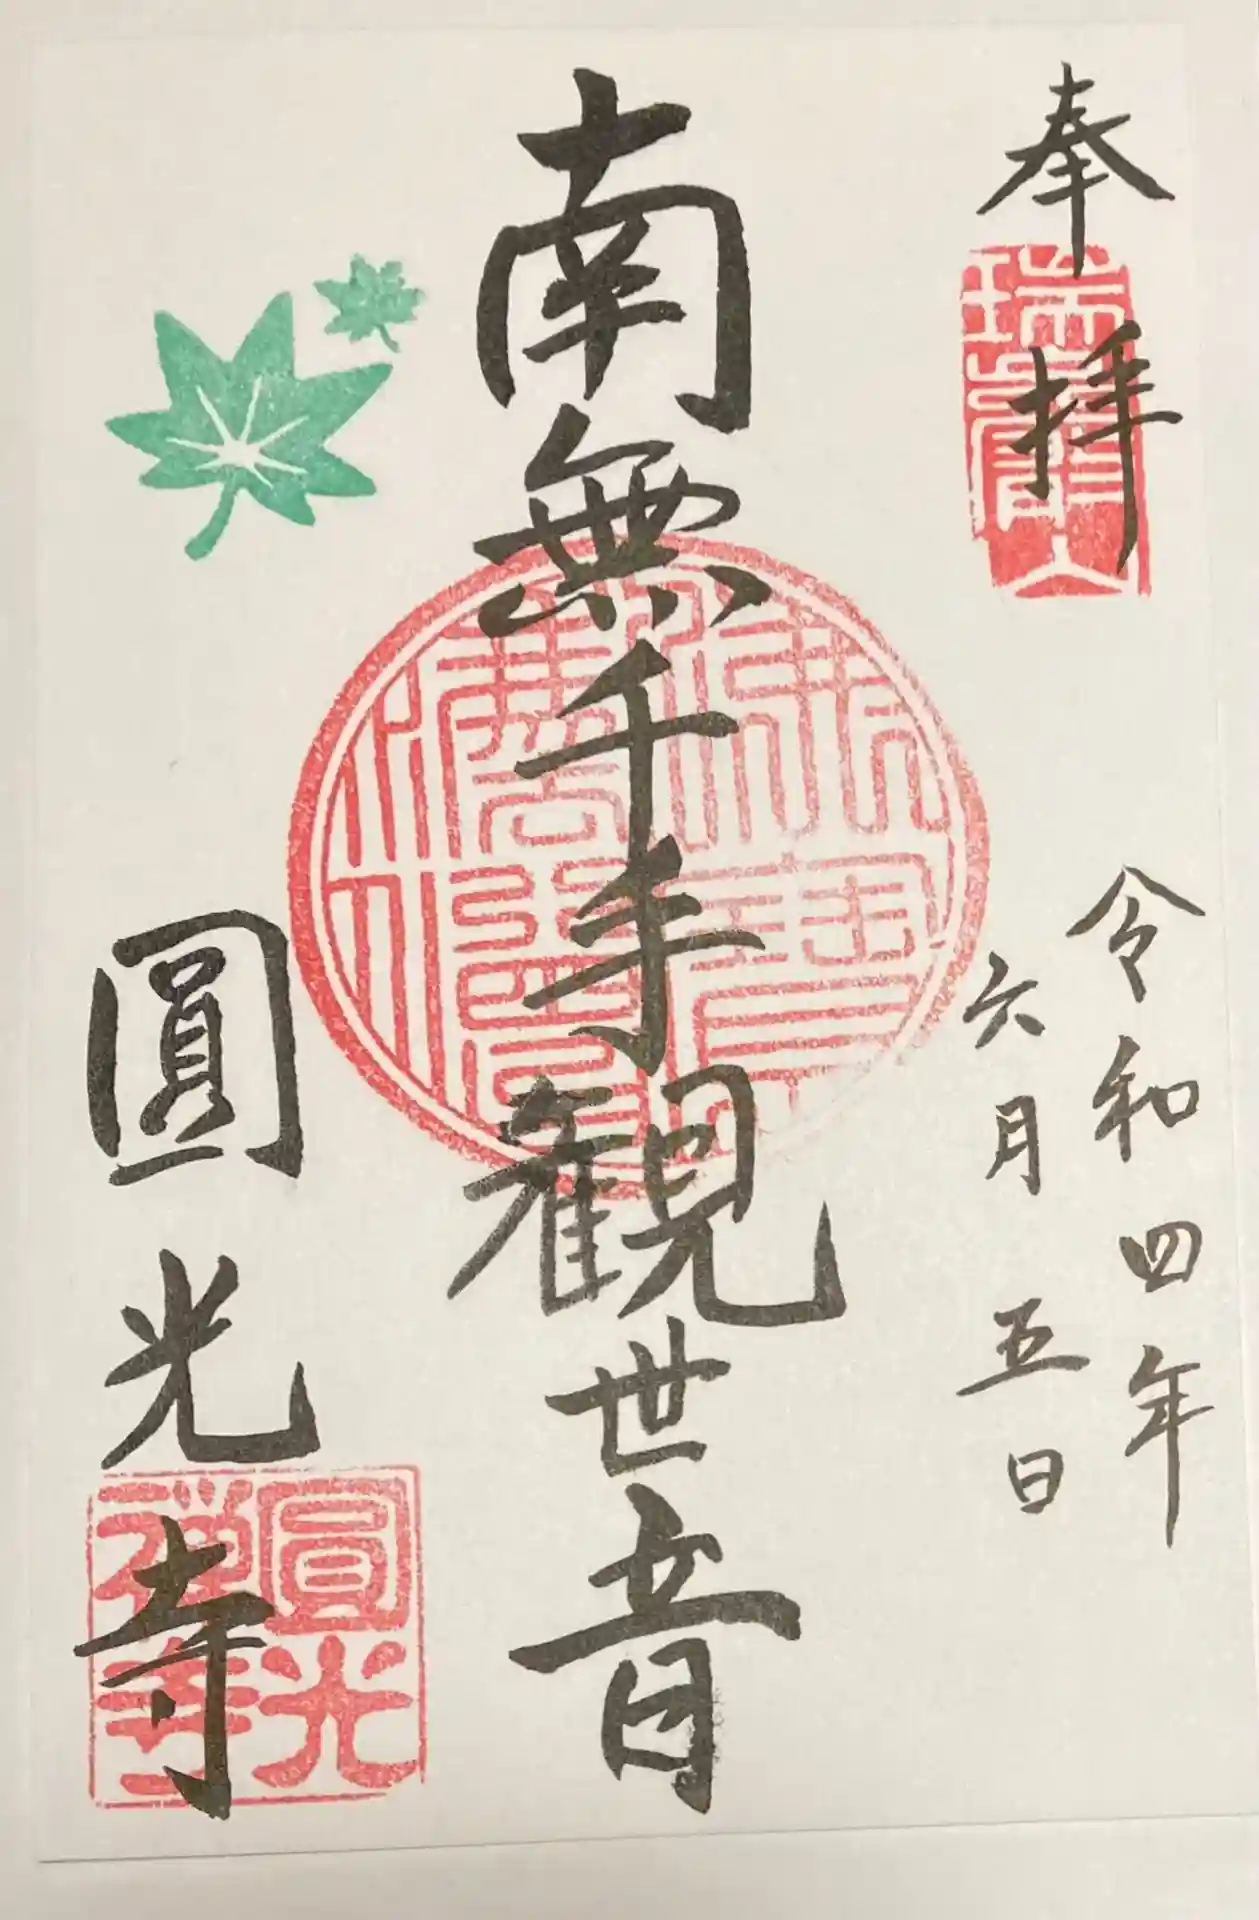 奉拝
令和四年
六月五日
南無千手観世音
圓光寺
圓光
禅寺